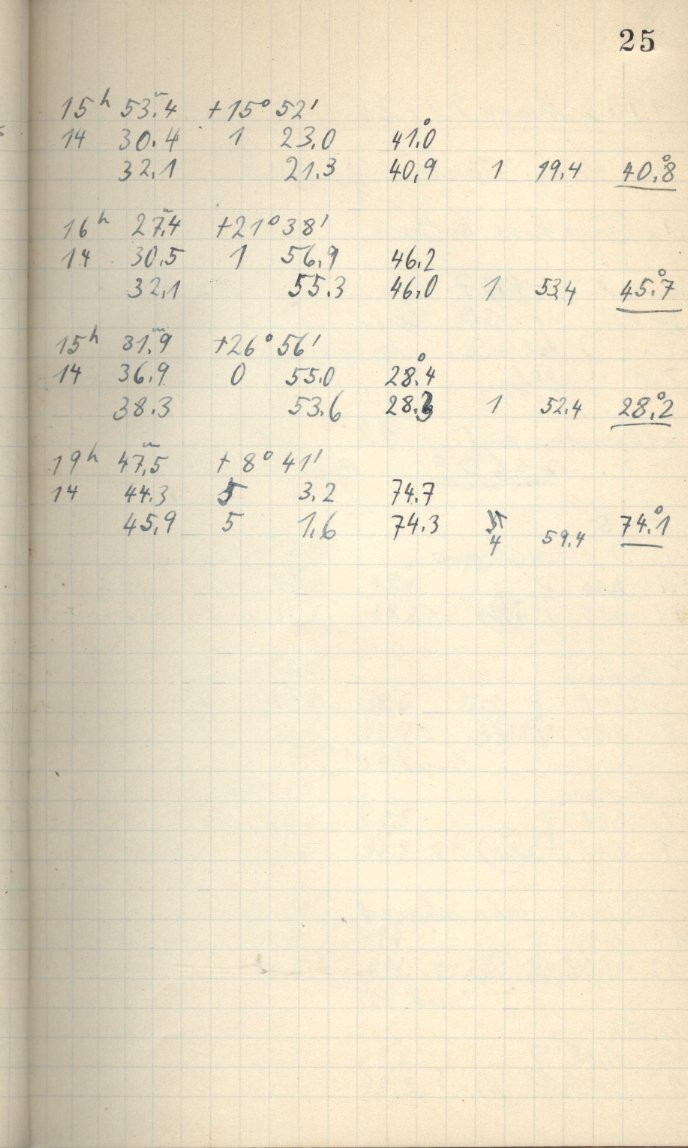 25
15ʰ 53ᵐ.4 +15° 52'
14 30.4 1 23.0 41.°0
32.1 21.3 40,9 1 19.4 40.°8
16ʰ 27ᵐ.4 +21° 38'
14 30.5 1 56.9 46.2
32.1 55.3 46.0 1 53.4 45.°7
15ʰ 31ᵐ.9 +26° 56'
14 36.9 0 55.0 28.°4
38.3 53.6 28.3 1 52.4 28.°2
19ʰ 47ᵐ.5 + 8° 41'
14 44.3 5 3.2 74.7
45.9 5 1.6 74.3 4 59.4 74.°1